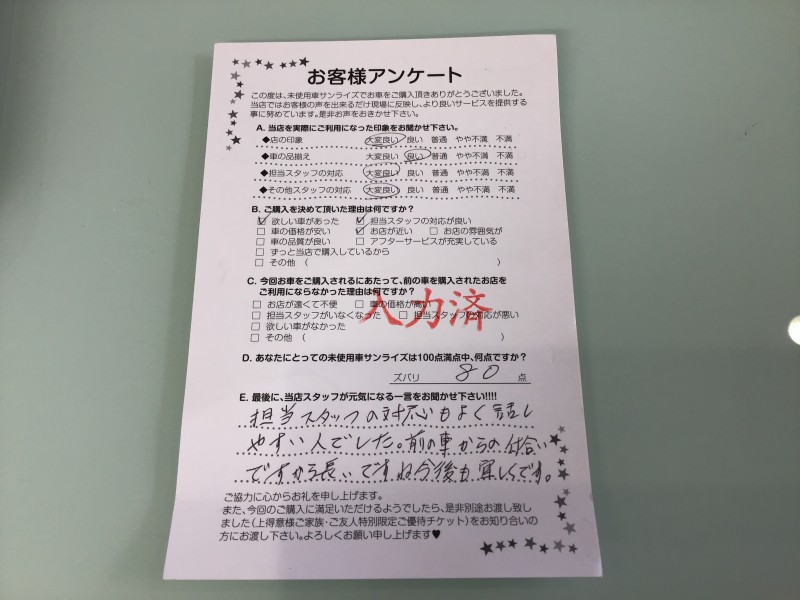 お客様アンケート
この度は、未使用車サンライズでお車をご購入頂きありがとうございました。
当店ではお客様の声を出来るだけ現場に反映し、より良いサービスを提供する
事に努めています。是非お声をおきかせ下さい。
A. 当店を実際にご利用になった印象をお聞かせ下さい。
◆店の印象 大変良い 良い 普通 やや不満 不満
◆車の品揃え 大変良い 良い 普通 やや不満 不満
◆担当スタッフの対応 大変良い 良い 普通 やや不満 不満
◆その他スタッフの対応 大変良い 良い 普通 やや不満 不満
B. ご購入を決めて頂いた理由は何ですか?
☑ 欲しい車があった ☑ 担当スタッフの対応が良い
□ 車の価格が安い ☑ お店が近い □ お店の雰囲気が
□ 車の品質が良い □ アフターサービスが充実している
□ ずっと当店で購入しているから
□ その他 ( )
C. 今回お車をご購入されるにあたって、前の車を購入されたお店を
ご利用にならなかった理由は何ですか?
□ お店が遠くて不便 □ 車の価格が高い
□ 担当スタッフがいなくなった □ 担当スタッフの対応が悪い
□ 欲しい車がなかった
□ その他 ( )
入力済
D. あなたにとっての未使用車サンライズは100点満点中、何点ですか?
ズバリ 80 点
E. 最後に、当店スタッフが元気になる一言をお聞かせ下さい!!!!
担当スタッフの対応もよく話し
やすい人でした。前の車からの付合い
ですから長いですね今後も宜しくです。
ご協力に心からお礼を申し上げます。
また、今回のご購入に満足いただけるようでしたら、是非別途お渡し致し
ました(上得意様ご家族・ご友人特別限定ご優待チケット)をお知り合いの
方にお渡し下さい。よろしくお願い申し上げます♥